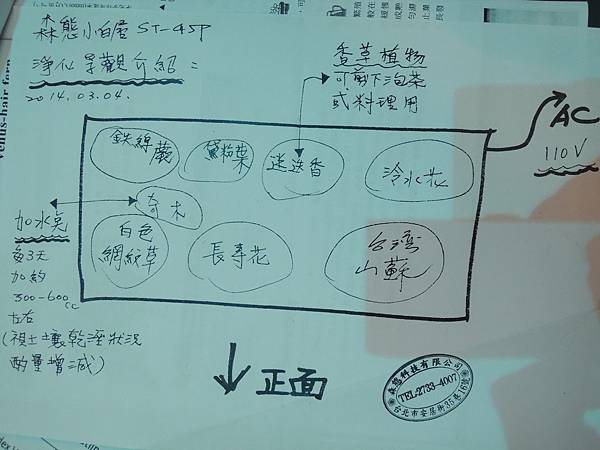 森態小白屋 ST-45P
淨化景觀介紹：
2014.03.04.
香草植物
可剪下泡茶
或料理用
AC
110V
鉄線蕨
黛粉葉
迷迭香
冷水花
奇木
加水點
每3天
加約
300-600cc
左右
(視土壤乾溼狀況
酌量增減)
白色
網紋草
長壽花
台湾
山蘇
正面
森態科技有限公司
TEL:2733-4007
台北市安居街35巷16號
Venus-hair fern